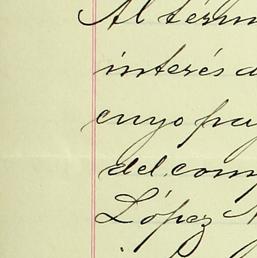 Al térm
interés d
cuyo pa
del comp
López